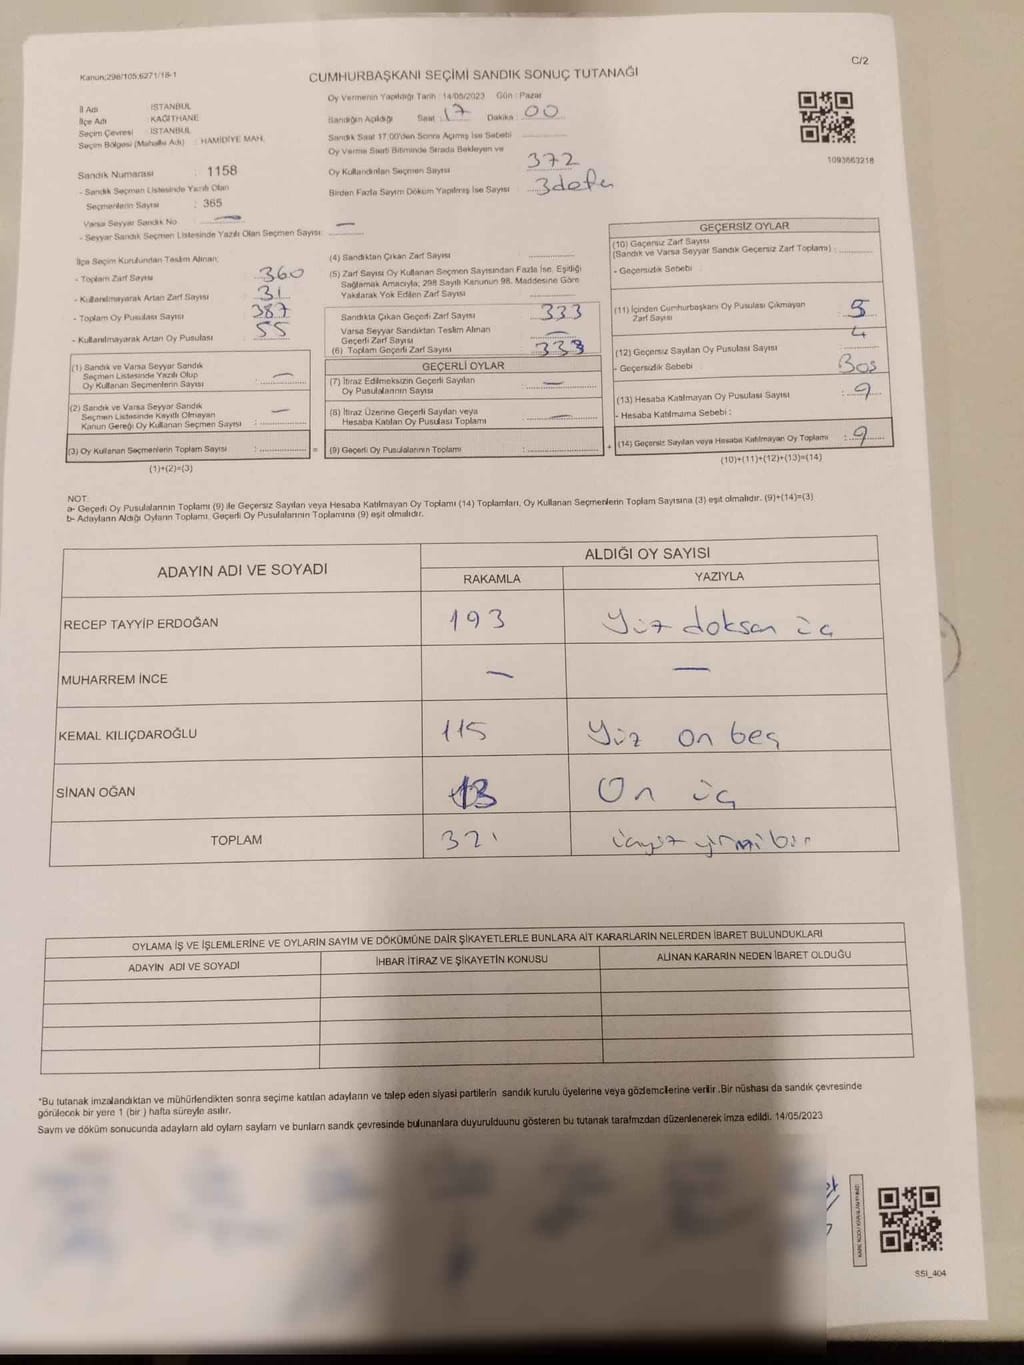 C/2
Kanun;298/105;6271/18-1
CUMHURBAŞKANI SEÇİMİ SANDIK SONUÇ TUTANAĞI
İl Adı : İSTANBUL
İlçe Adı : KAĞITHANE
Seçim Çevresi : İSTANBUL
Seçim Bölgesi (Mahalle Adı) : HAMİDİYE MAH.
Sandık Numarası : 1158
- Sandık Seçmen Listesinde Yazılı Olan
Seçmenlerin Sayısı : 365
Varsa Seyyar Sandık No —
- Seyyar Sandık Seçmen Listesinde Yazılı Olan Seçmen Sayısı: —
Oy Vermenin Yapıldığı Tarih : 14/05/2023 Gün : Pazar
Sandığın Açıldığı Saat : 17 Dakika : 00
Sandık Saat 17.00'den Sonra Açımış İse Sebebi
Oy Verme Saati Bitiminde Sırada Bekleyen ve
Oy Kullandırılan Seçmen Sayısı : 372
Birden Fazla Sayım Döküm Yapılmış İse Sayısı : 3 defa
1093663218
İlçe Seçim Kurulundan Teslim Alınan;
- Toplam Zarf Sayısı : 360
- Kullanılmayarak Artan Zarf Sayısı : 31
- Toplam Oy Pusulası Sayısı : 387
- Kullanılmayarak Artan Oy Pusulası : 55
(1) Sandık ve Varsa Seyyar Sandık
Seçmen Listesinde Yazılı Olup
Oy Kullanan Seçmenlerin Sayısı : —
(2) Sandık ve Varsa Seyyar Sandık
Seçmen Listesinde Kayıtlı Olmayan
Kanun Gereği Oy Kullanan Seçmen Sayısı : —
(3) Oy Kullanan Seçmenlerin Toplam Sayısı : =
(1)+(2)=(3)
(4) Sandıktan Çıkan Zarf Sayısı :
(5) Zarf Sayısı Oy Kullanan Seçmen Sayısından Fazla İse, Eşitliği
Sağlamak Amacıyla; 298 Sayılı Kanunun 98. Maddesine Göre
Yakılarak Yok Edilen Zarf Sayısı :
Sandıkta Çıkan Geçerli Zarf Sayısı : 333
Varsa Seyyar Sandıktan Teslim Alınan
Geçerli Zarf Sayısı : —
(6) Toplam Geçerli Zarf Sayısı : 333
GEÇERLİ OYLAR
(7) İtiraz Edilmeksizin Geçerli Sayılan
Oy Pusulalarının Sayısı : —
(8) İtiraz Üzerine Geçerli Sayılan veya
Hesaba Katılan Oy Pusulası Toplamı : —
(9) Geçerli Oy Pusulalarının Toplamı : +
GEÇERSİZ OYLAR
(10) Geçersiz Zarf Sayısı
(Sandık ve Varsa Seyyar Sandık Geçersiz Zarf Toplamı) :
- Geçersizlik Sebebi :
(11) İçinden Cumhurbaşkanı Oy Pusulası Çıkmayan
Zarf Sayısı : 5
4
(12) Geçersiz Sayılan Oy Pusulası Sayısı :
- Geçersizlik Sebebi : Boş
(13) Hesaba Katılmayan Oy Pusulası Sayısı : 9
- Hesaba Katılmama Sebebi :
(14) Geçersiz Sayılan veya Hesaba Katılmayan Oy Toplamı : 9
(10)+(11)+(12)+(13)=(14)
NOT:
a- Geçerli Oy Pusulalarının Toplamı (9) ile Geçersiz Sayılan veya Hesaba Katılmayan Oy Toplamı (14) Toplamları, Oy Kullanan Seçmenlerin Toplam Sayısına (3) eşit olmalıdır. (9)+(14)=(3)
b- Adayların Aldığı Oyların Toplamı, Geçerli Oy Pusulalarının Toplamına (9) eşit olmalıdır.
ADAYIN ADI VE SOYADI ALDIĞI OY SAYISI
RAKAMLA YAZIYLA
RECEP TAYYİP ERDOĞAN 193 Yüz doksan üç
MUHARREM İNCE — —
KEMAL KILIÇDAROĞLU 115 Yüz on beş
SİNAN OĞAN 13 On üç
TOPLAM 321 üçyüz yirmi bir
OYLAMA İŞ VE İŞLEMLERİNE VE OYLARIN SAYIM VE DÖKÜMÜNE DAİR ŞİKAYETLERLE BUNLARA AİT KARARLARIN NELERDEN İBARET BULUNDUKLARI
ADAYIN ADI VE SOYADI İHBAR İTİRAZ VE ŞİKAYETİN KONUSU ALINAN KARARIN NEDEN İBARET OLDUĞU
*Bu tutanak imzalandıktan ve mühürlendikten sonra seçime katılan adayların ve talep eden siyasi partilerin sandık kurulu üyelerine veya gözlemcilerine verilir .Bir nüshası da sandık çevresinde
görülecek bir yere 1 (bir ) hafta süreyle asılır.
Sayım ve döküm sonucunda adayların aldı oyların sayıların ve bunların sandk çevresinde bulunanlara duyurulduunu gösteren bu tutanak tarafmzdan düzenlenerek imza edildi. 14/05/2023
SSI_404